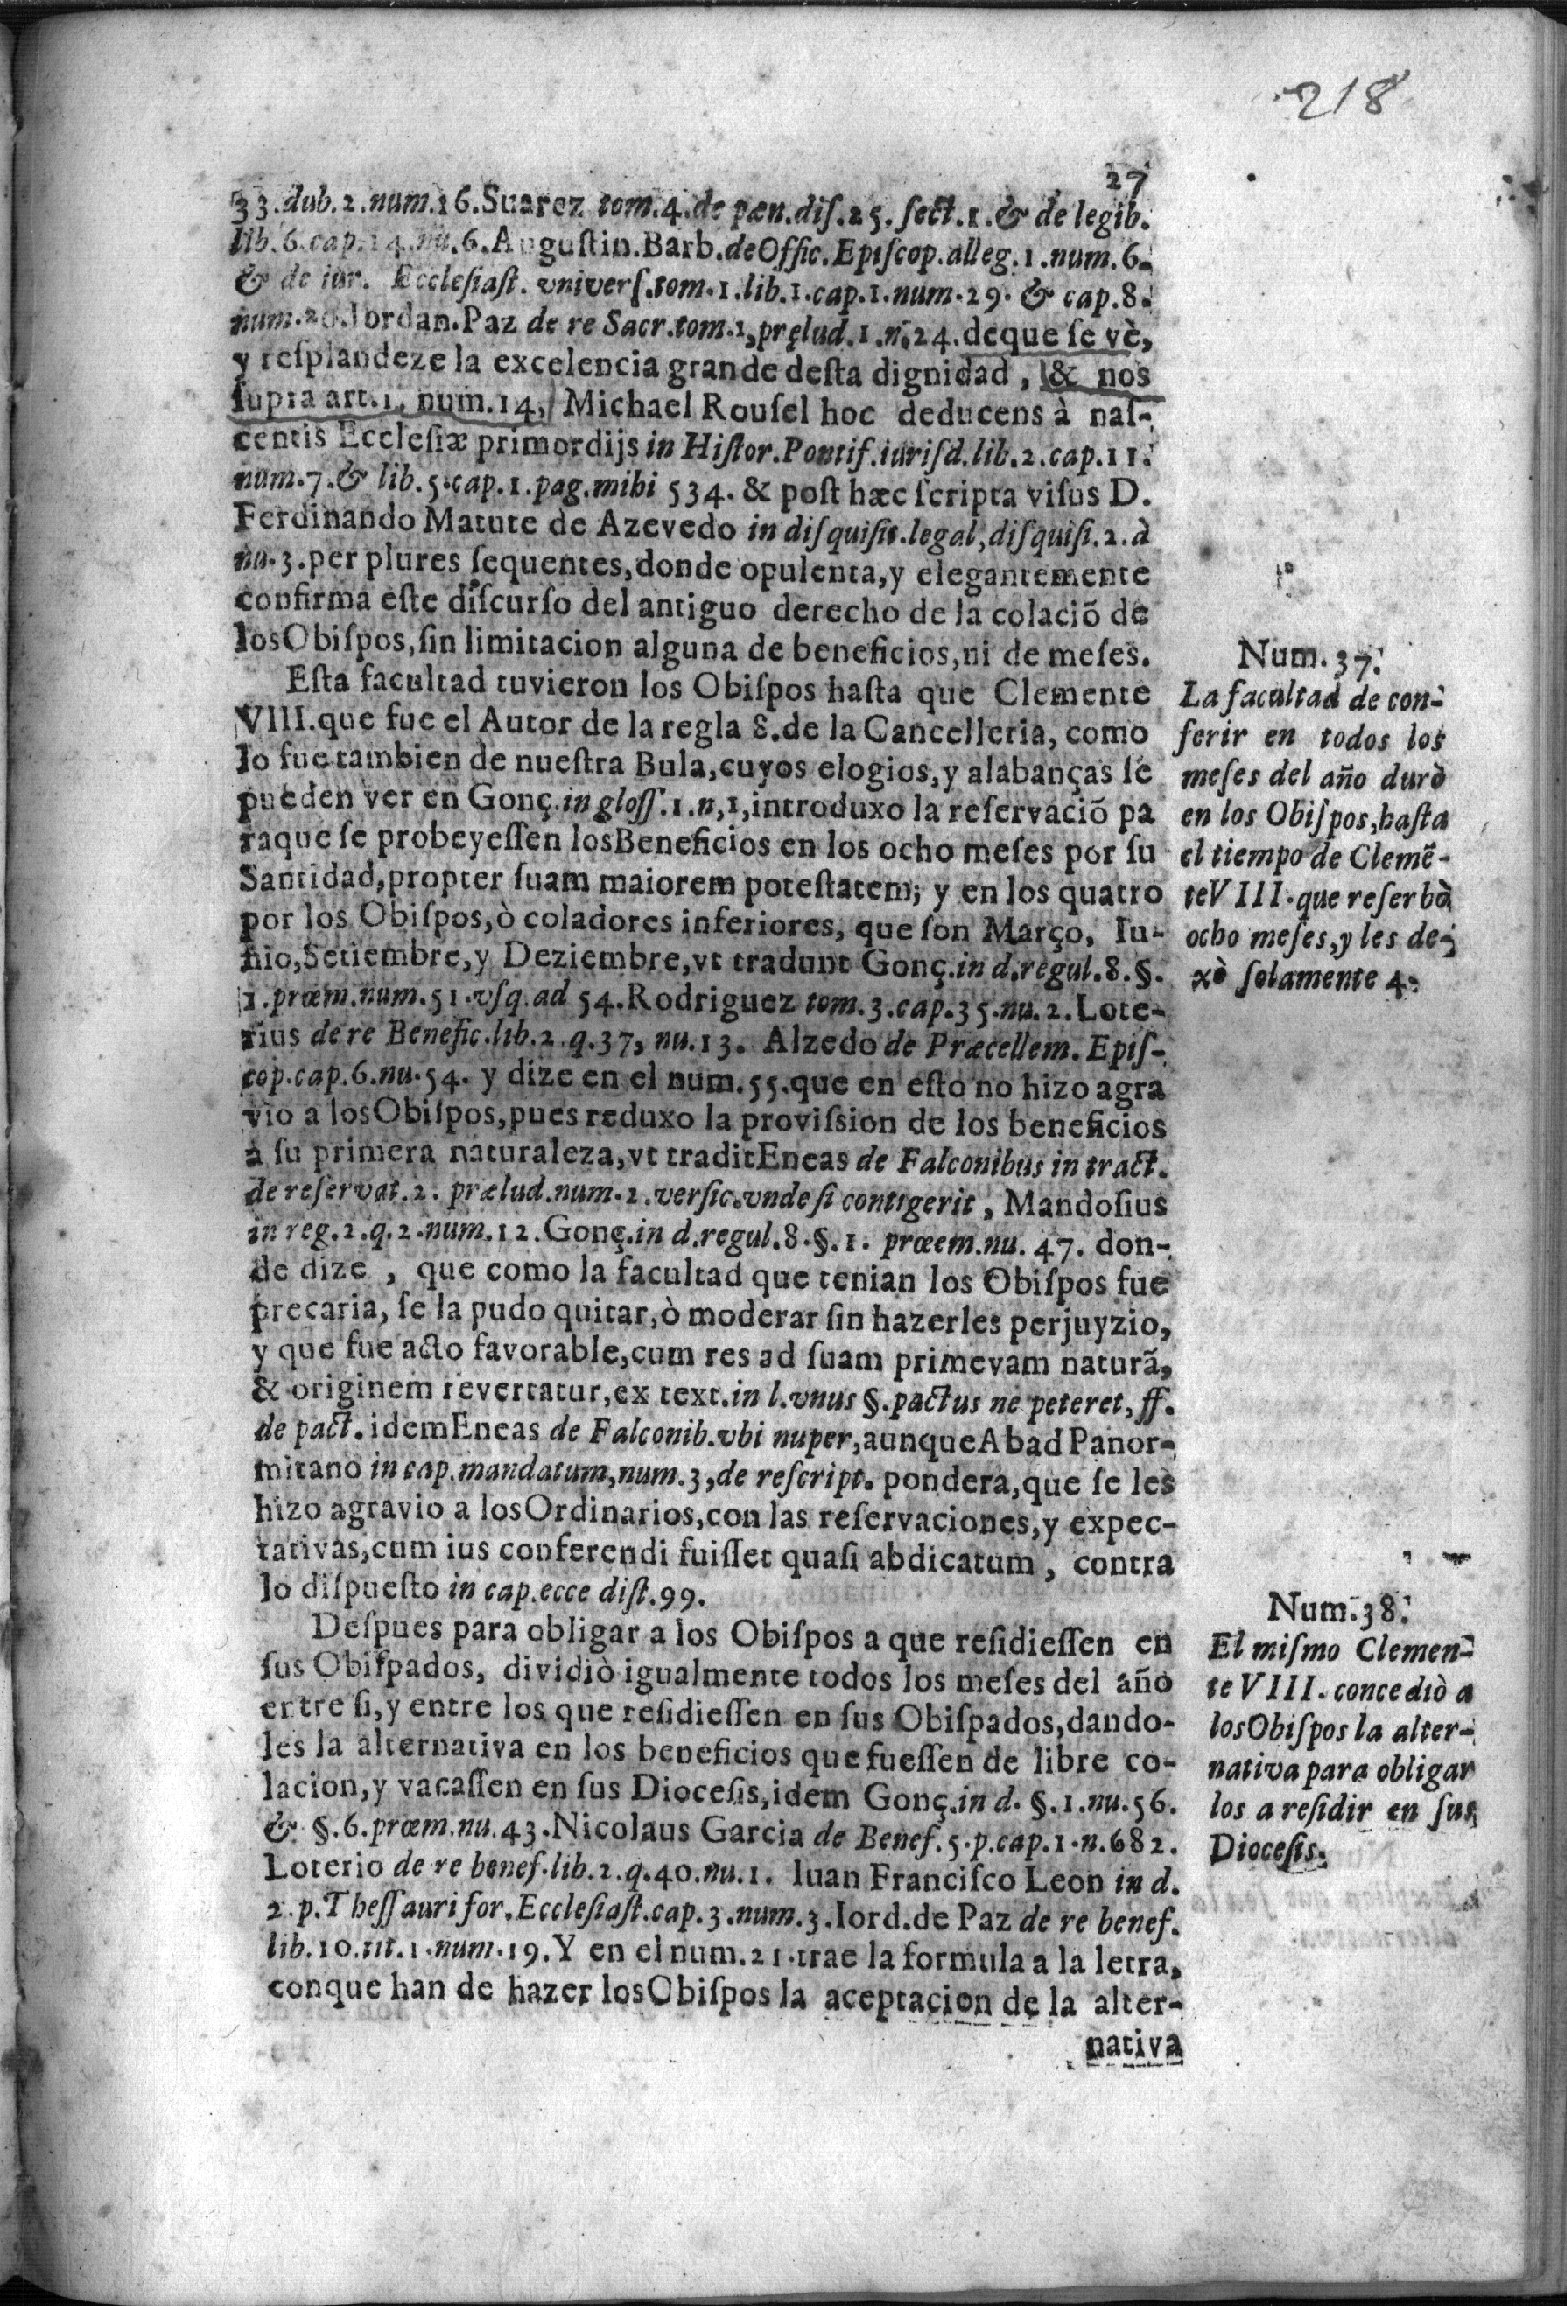 218
27
33.dub.2.num.16.Suarez tom.4.de pæn.diſ.25.ſect.1.& de legib.
lib.6.cap.14.nu.6.Auguſtin.Barb.deOffic.Epiſcop.alleg.1.num.6.
& de iur. Eccleſiaſt. vniverſ.tom.1.lib.1.cap.1.num.29. & cap.8.
num.20.Iordan.Paz de re Sacr.tom.1,pręlud.1.n.24.deque ſe vè,
y reſplandeze la excelencia grande deſta dignidad, & nos
ſupra art.1. num.14, Michael Rouſel hoc deducens à naſ-
centis Eccleſiæ primordijs in Hiſtor.Pontif.iuriſd.lib.2.cap.11.
num.7.& lib.5.cap.1.pag.mihi 534. & poſt hæc ſcripta viſus D.
Ferdinando Matute de Azevedo in diſquiſit.legal,diſquiſi.2.à
nu.3.per plures ſequentes,donde opulenta,y elegantemente
confirma eſte diſcurſo del antiguo derecho de la colaciõ de
losObiſpos,ſin limitacion alguna de beneficios,ni de meſes.
Eſta facultad tuvieron los Obiſpos haſta que Clemente
VIII.que fue el Autor de la regla 8.de la Cancelleria, como
lo fue tambien de nueſtra Bula,cuyos elogios,y alabanças ſe
pueden ver en Gonç.in gloſſ.1.n,1,introduxo la reſervaciõ pa
raque ſe probeyeſſen losBeneficios en los ocho meſes por ſu
Santidad,propter ſuam maiorem poteſtatem; y en los quatro
por los Obiſpos,ò coladores inferiores, que ſon Março, Iu-
nio,Setiembre,y Deziembre,vt tradunt Gonç.in d.regul.8.§.
1.proem.num.51.vſq.ad 54.Rodriguez tom.3.cap.35.nu.2.Lote-
rius de re Benefic.lib.2.q.37, nu.13. Alzedo de Præcellem. Epiſ-
cop.cap.6.nu.54. y dize en el num.55.que en eſto no hizo agra
vio a losObiſpos,pues reduxo la proviſsion de los beneficios
a ſu primera naturaleza,vt traditEneas de Falconibus in tract.
de reſervat.2. prælud.num.2.verſic.vnde ſi contigerit, Mandoſius
in reg.2.q.2.num.12.Gonç.in d.regul.8.§.1. proem.nu. 47. don-
de dize , que como la facultad que tenian los Obiſpos fue
precaria, ſe la pudo quitar,ò moderar ſin hazerles perjuyzio,
y que fue acto favorable,cum res ad ſuam primevam naturã,
& originem revertatur,ex text.in l.vnus §.pactus ne peteret,ff.
de pact. idemEneas de Falconib.vbi nuper,aunqueAbad Panor-
mitano in cap.mandatum,num.3,de reſcript. pondera,que ſe les
hizo agravio a losOrdinarios,con las reſervaciones,y expec-
tativas,cum ius conferendi fuiſſet quaſi abdicatum, contra
lo diſpueſto in cap.ecce diſt.99.
Deſpues para obligar a los Obiſpos a que reſidieſſen en
ſus Obiſpados, dividiò igualmente todos los meſes del año
entre ſi,y entre los que reſidieſſen en ſus Obiſpados,dando-
les la alternativa en los beneficios que fueſſen de libre co-
lacion,y vacaſſen en ſus Dioceſis,idem Gonç.in d. §.1.nu.56.
& §.6.proem.nu.43.Nicolaus Garcia de Benef.5.p.cap.1.n.682.
Loterio de re benef.lib.2.q.40.nu.1. Iuan Franciſco Leon in d.
2.p.Theſſauri for.Eccleſiaſt.cap.3.num.3.Iord.de Paz de re benef.
lib.10.tit.1.num.19.Y en el num.21.trae la formula a la letra,
conque han de hazer losObiſpos la aceptacion de la alter-
nativa
Num.37.
La facultad de con-
ferir en todos los
meſes del año durò
en los Obiſpos,haſta
el tiempo de Clemẽ-
teVIII.que reſerbò
ocho meſes,y les de-
xò ſolamente 4.
Num.38.
El miſmo Clemen-
te VIII. concediò a
losObiſpos la alter-
nativa para obligar
los a reſidir en ſus
Dioceſis.